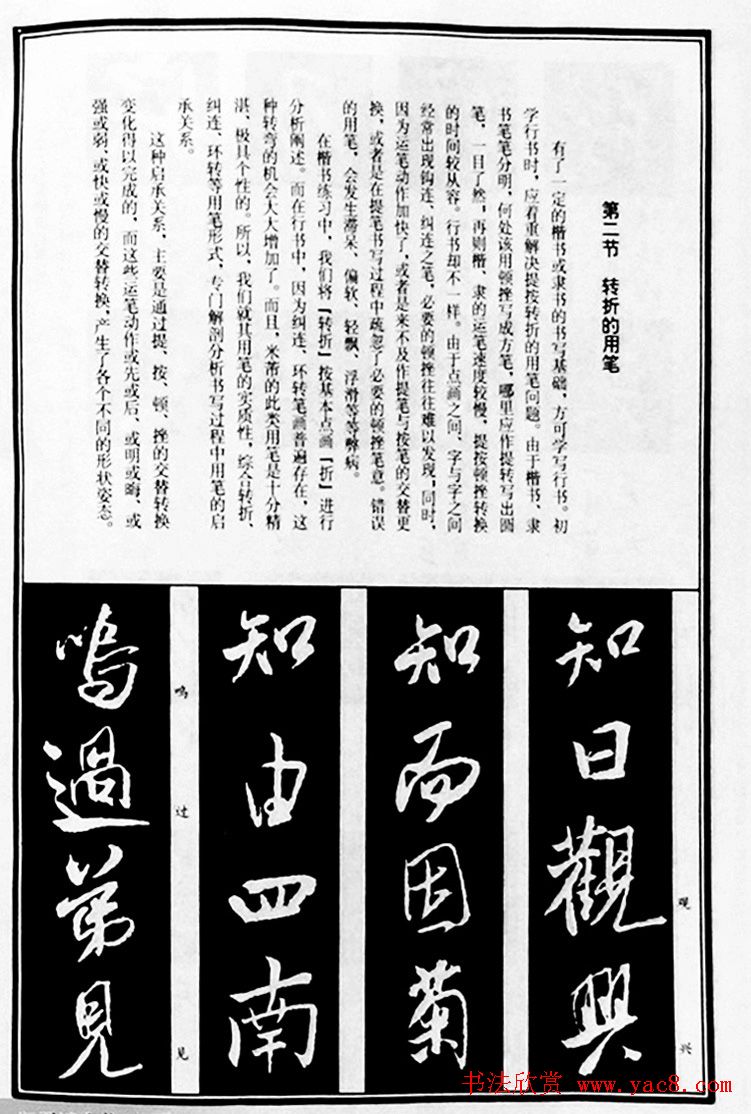 第二节 转折的用笔
有了一定的楷书或隶书的书写基础，方可学写行书。初
学行书时，应着重解决提按转折的用笔问题。由于楷书、隶
书笔笔分明，何处该用顿挫写成方笔，哪里应作提转写出圆
笔，一目了然，再则楷、隶的运笔速度较慢，提按顿挫转换
的时间较从容。行书却不一样。由于点画之间、字与字之间
经常出现钩连、纠连之笔，必要的顿挫往往难以发现；同时，
因为运笔动作加快了，或者是来不及作提笔与按笔的交替更
换，或者是在提笔书写过程中疏忽了必要的顿挫笔意。错误
的用笔，会发生滞呆、偏软、轻飘、浮滑等等弊病。
在楷书练习中，我们将「转折」按基本点画「折」进行
分析阐述。而在行书中，因为纠连、环转笔画普遍存在，这
种转弯的机会大大增加了。而且，米芾的此类用笔是十分精
湛、极具个性的。所以，我们就其用笔的实质性，综合转折、
纠连、环转等用笔形式，专门解剖分析书写过程中用笔的启
承关系。
这种启承关系，主要是通过提、按、顿、挫的交替转换
变化得以完成的，而这些运笔动作或先或后、或明或晦、或
强或弱、或快或慢的交替转换，产生了各个不同的形状姿态。
知日觀興
观 兴
知而因菊
知由四南
鳴過第見
鸣 过 见
书法欣赏 www.yac8.com